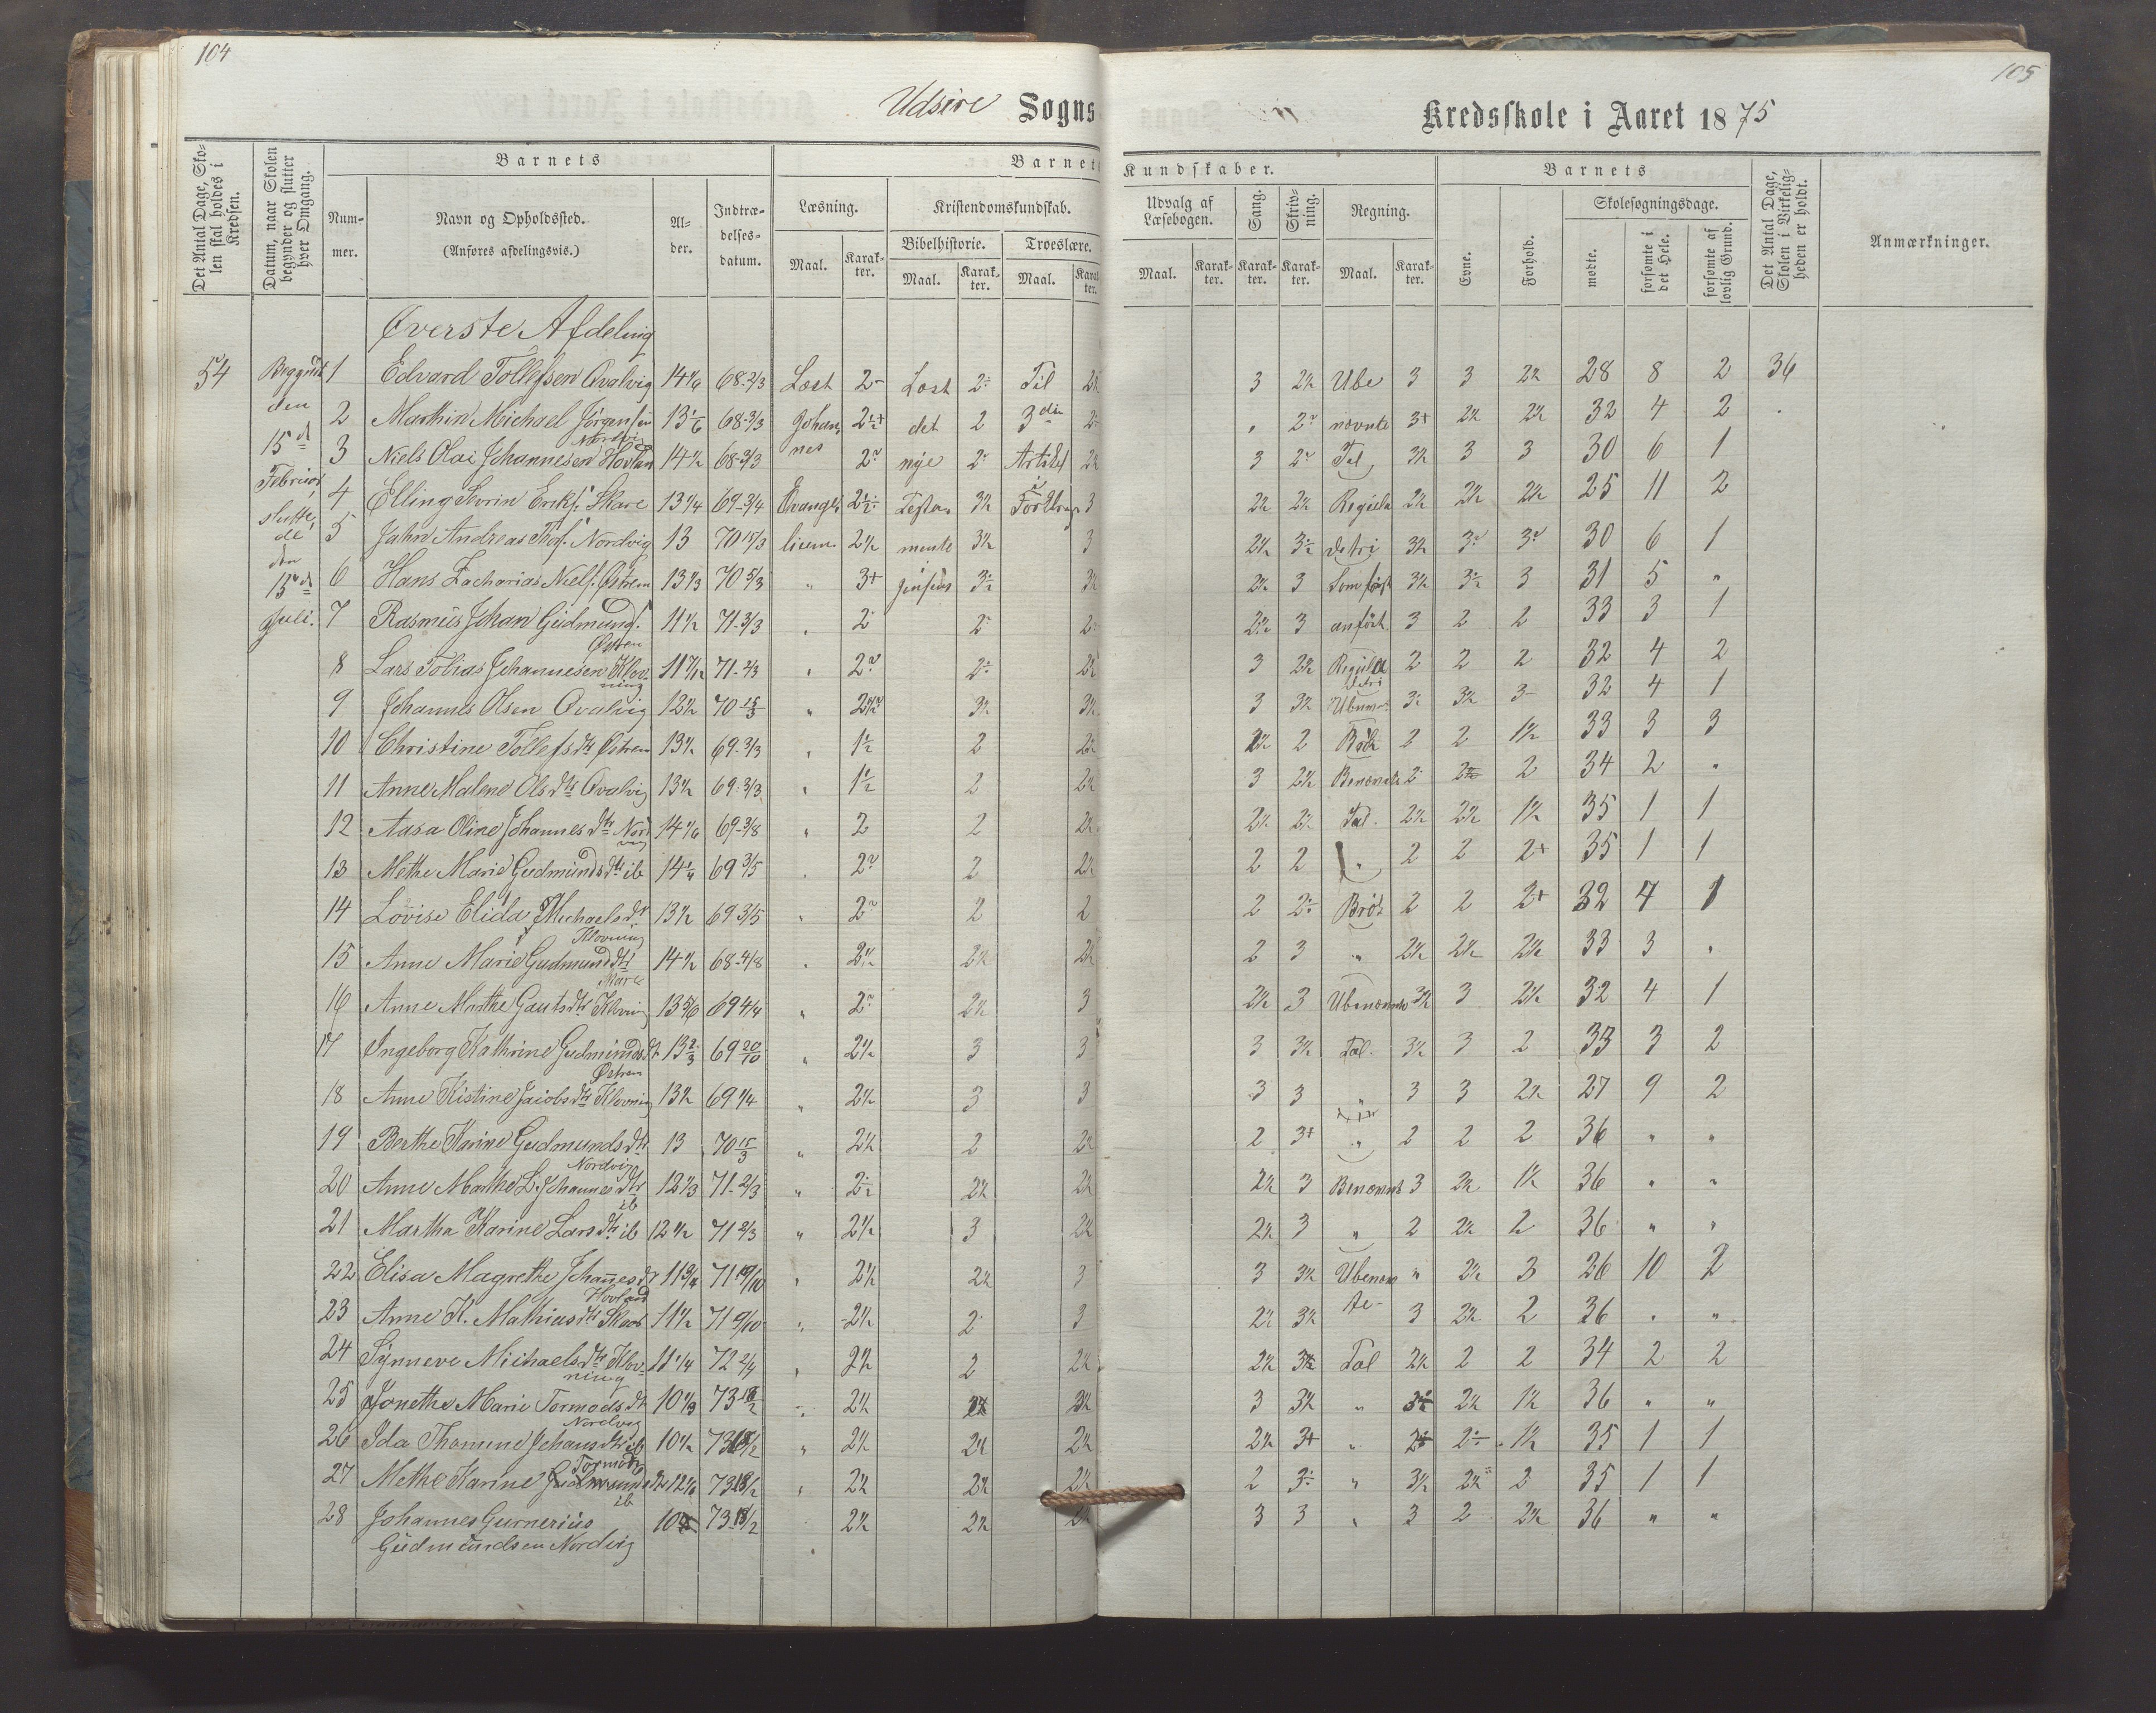 104
Udsire Sogns
105
Kredsskole i Aaret 1875
Det Antal Dage, Skolen skal holdes i Kredsen.
Datum, naar Skolen begynder og slutter hver Omgang.
Barnets
Nummer.
Navn og Opholdssted.
(Anføres afdelingsvis.)
Alder.
Indtrædelsesdatum.
Barnets
Læsning.
Maal. Karakter.
Kristendomskundskab.
Bibelhistorie. Troeslære.
Maal. Karakter. Maal. Karakter.
Kundskaber.
Udvalg af Læsebogen.
Maal. Karakter.
Sang. Karakter.
Skrivning. Karakter.
Regning.
Maal. Karakter.
Barnets
Evne. Forhold.
Skolesøgningsdage.
mødte. forsømte i det Hele. forsømte af lovlig Grund.
Det Antal Dage, Skolen i Virkeligheden er holdt.
Anmærkninger.
Øverste Afdeling
54 Begyndt den 15de Februar, sluttede den 15de Juli.
1 Edvard Tollefsen Qvalvig 14 1/6 68-2/3 Læst 2- Læst 2- Til 3 2½ Ube 3 3 2½ 28 8 2 36
2 Marthin Michael Jörgensen Nordvig 13 1/6 68-3/3 Johan, det 2 3die nævnte 3+ 2½ 2½ 32 4 2
3 Niels Olai Johannesen Hovlan 14½ 68-3/3 nes nye Artikel 3 Tal 3½ 3 3 30 6 1
4 Elling Severin Eriks. Skare 13 1/4 69-3/4 Evange, Testa, 3½ i Fortkrage 3 2½ 2½ Regula 2½ 2½ 2½ 25 11 2
5 Jahn Andreas Nordvig 13 70 15/3 lium 2½ mente 3½ 3 2½ detri 3½ 30 6 1
6 Hans Zacharias Niels. Østrem 13 1/3 70 5/3 " 3+ 2½ 3 Som först 3½ 3 31 5 "
7 Rasmus Johan Gudmund. Østrem 11½ 71-3/3 3 anfört 3 2 2 33 3 1
8 Lars Tobias Johannesen Klovning 71-2/3 3 2½ Regula detri 2 2 2 32 4 2
9 Johannes Olsen Qvalvig 12½ 70 15/3 " 3½ 3½ 3 3½ 3½ 3- 32 4 1
10 Christine Tollefsdtr Østrem 13½ 69-3/3 2 2½ 2 Brök 2 2 1½ 33 3 3
11 Anne Malene Olsdtr Qvalvig 13½ 69-3/3 2 2½ 3 2½ Benævnte 2 34 2 "
12 Aasa Oline Johannesdtr Nordvig 14 1/6 69-3/8 " 2 2 2½ 2½ 2½ Tal. 2½ 2½ 1½ 35 1 1
13 Methe Marie Gudmundsdtr ib 69 3/5 2 2½ 2 2 " 2 2 2+ 35 1 1
14 Lovise Elida Michaelsdtr Klovning 13½ 69 3/5 2 2 2 Brök 2 2 2+ 32 4 1
15 Anne Marie Gudmundsdtr Skare 14½ 68-4/8 2½ 2½ 2½ 2 3 " 2½ 2½ 2½ 33 3 "
16 Anne Marthe Gautsdtr Klovning 13 5/6 69 4/4 2½ 3 2½ 3 Ubenævnte 3½ 3 2½ 32 4 1
17 Ingeborg Kathrine Gudmundsdtr Østrem 13 2/3 69 20/10 2½ 3 3 3 3½ Tal. 3½ 3 2 33 3 2
18 Anne Kistine Jacobsdtr Klovning 13½ 69 4/4 " 2½ 3 3 3 3 " 3 3 2½ 27 9 2
19 Berthe Karine Gudmundsdtr Nordvig 13 70 15/3 " 2½ 2 2½ 2 3+ " 2 2 2 36 " "
20 Anne Marthe L. Johannesdtr ib 12 1/3 71-2/3 " 2½ 2½ 2½ 3 Benævnt 3 2½ 1½ 36 " "
21 Martha Karine Larsdtr ib 12½ 71 2/3 " 2½ 3 2½ 2½ 3 " 2 2½ 2 36 " "
22 Elisa Magrethe Johannesdtr Hovland 11 3/4 71 19/10 2½ 2½ 3 3 3½ Ubenævn " 2½ 3 26 10 2
23 Anne K. Mathiasdtr Skare 11½ 71 9/10 2½ 2 3 2½ 3½ te- 3 2½ 2 36 " "
24 Synneve Michaelsdtr Klovning 11 1/4 72 2/4 2½ 2 2½ 2½ 3½ Tal 2½ 2 2 34 2 2
25 Jonethe Marie Tormodsdtr Nordvig 10 1/3 73 18/2 2½ 3½ 3 3½ " 2½ 1½ 36 " "
26 Ida Thomine Johansdtr ib 10½ 73 18/2 " 2½ 2½ 2½ 2½ 3+ " 1½ 35 1 1
27 Methe Karine Tormodsdtr ib 12 1/6 73 18/2 2½ 2½ 2½ 2 " 3½ 2½ 2 35 1 1
28 Johannes Gurnerius Gudmundsen Nordvig 73 18/2 2½ 2½ 2½ 3 3 " 3 2 2½ 36 " "